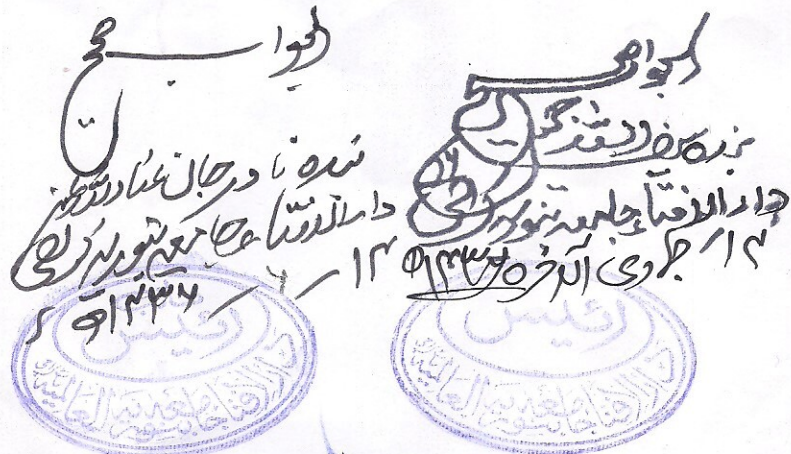 الجواب صحیح
بندہ
دارالافتاء جامعہ بنوریہ کراچی
۱۲؍ جمادی الآخرہ ۱۴۳۶ھ
رئیس
دارالافتاء جامعہ بنوریہ العالمیہ
الجواب صحیح
بندہ نادر جان عفا اللہ عنہ
دارالافتاء جامعہ بنوریہ کراچی
۱۲ / ۶ / ۱۴۳۶ھ
رئیس
دارالافتاء جامعہ بنوریہ العالمیہ